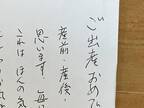 ご出産おめで
産前・産後・
思います！毎
これは ほんの気